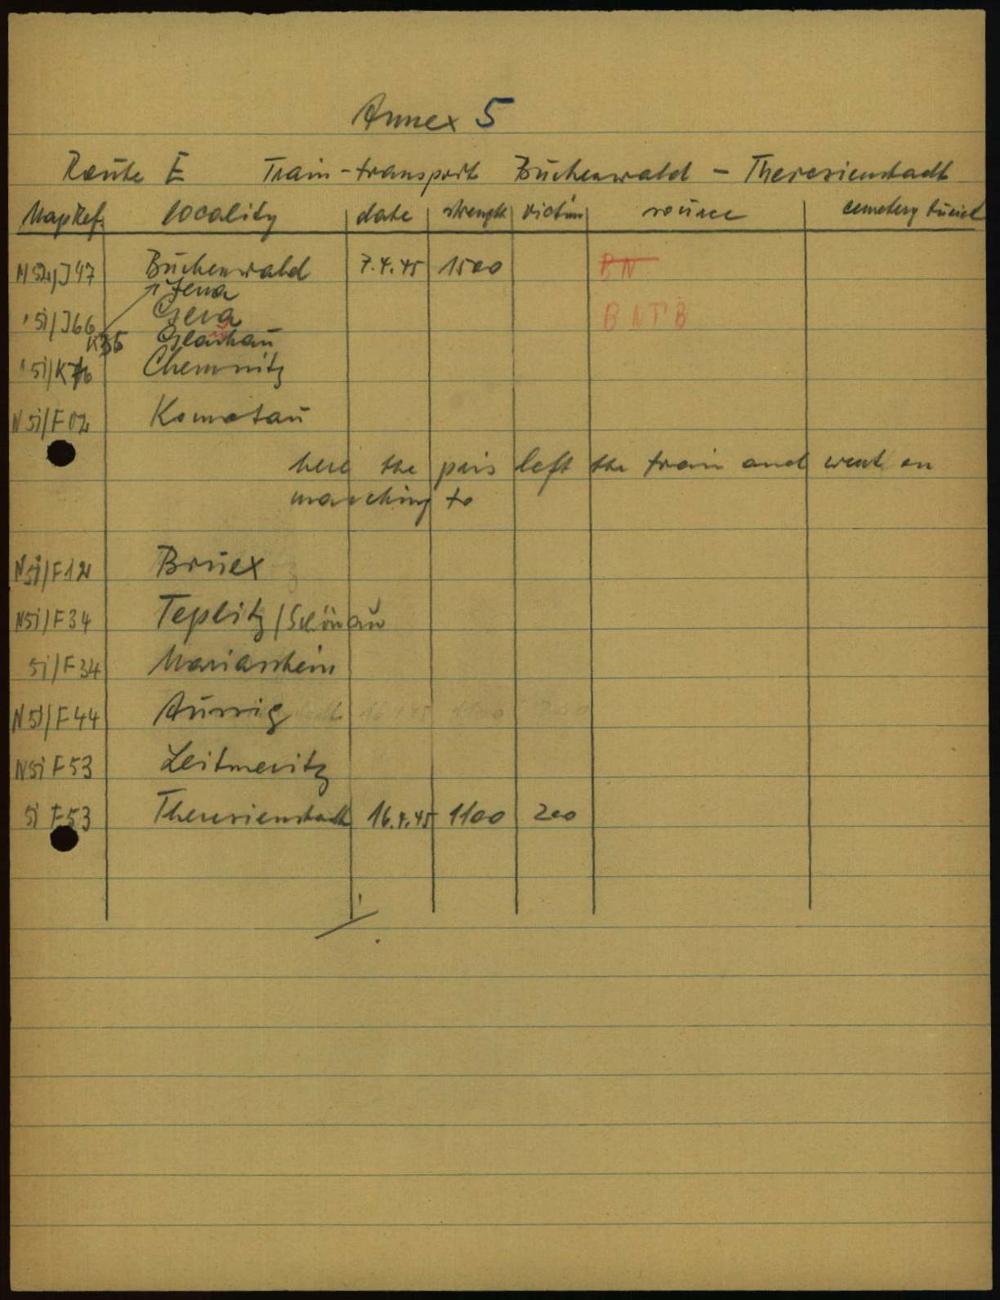 Annex 5
Route E Train-transport Buchenwald - Theresienstadt
MapRef. locality date strength victim source cemetery burial
M52/J47 Buchenwald 7.4.45 1500 BN
Jena
51/J66 Gera BNTB
K35 Glauchau
51/K76 Chemnitz
N51/F02 Komotau
here the pris left the train and went on
marching to
N51/F12 Brüex
N51/F34 Teplitz/Schönau
51/F34 Mariaschein
N51/F44 Aussig
N51 F53 Leitmeritz
51 F53 Theresienstadt 16.4.45 1100 200